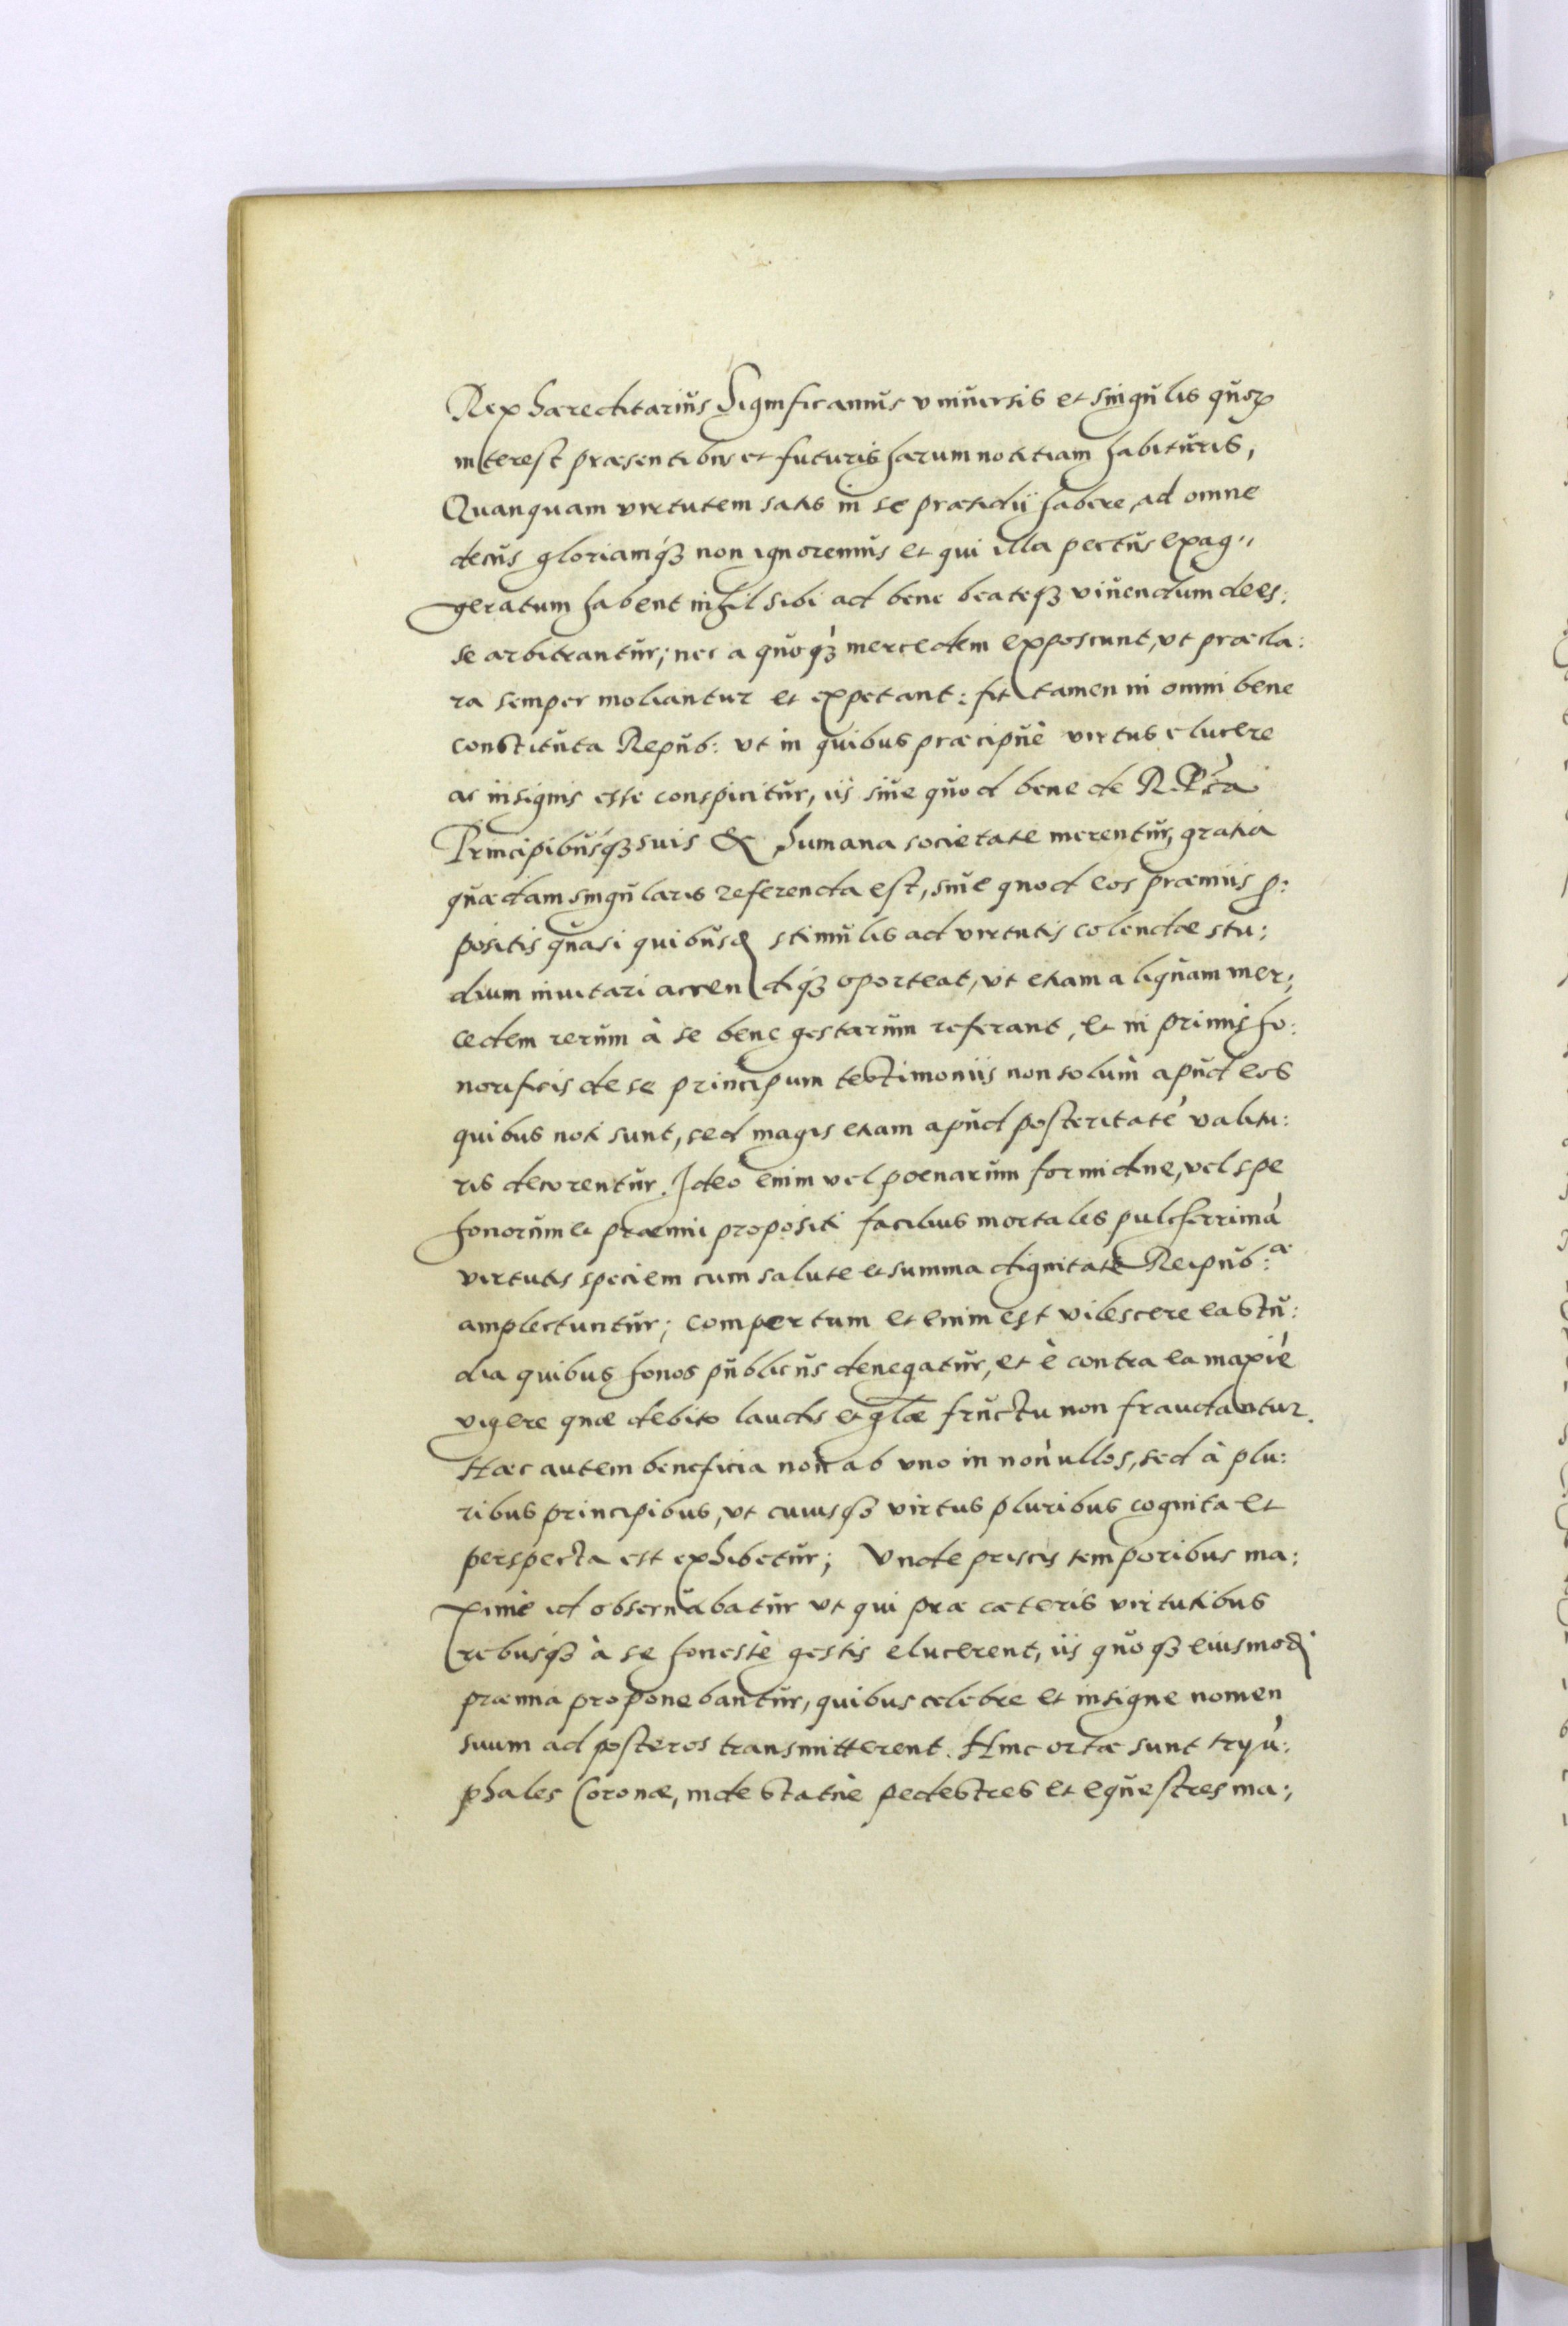 Rex hæreditarius Significamus vniuersis et singulis quoꝝ
interest præsentibus et futuris harum notitiam habituris,
Quanquam virtutem satis in se præsidij habere, ad omne
decus gloriamqꝫ non ignoremus et qui illa pectus exag"
geratum habent nihil sibi ad bene beateqꝫ viuendum dees:
se arbitrantur; nec a quoqꝫ mercedem exposcunt, vt præcla:
ra semper moliantur et expetant: fit tamen in omni bene
constituta Repub: vt in quibus præcipuè virtus elucere
ac insignis esse conspicitur, iis siue quod bene de R.
Principibusqꝫ suis & humana societate merentur, gratia
quædam singularis referenda est, siue quod eos præmiis p:
positis quasi quibusd stimulis ad virtutis colendæ stu:
dium inuitari accendiqꝫ oporteat, vt etiam aliquam mer:
cedem rerum à se bene gestarum referant, et in primis ho:
norificis de se principum testimoniis non solum apud eos
quibus noti sunt, sed magis etiam apud posteritatē valitu:
ris decorentur. Ideo enim vel poenarum formidine, vel spe
honorum et præmii propositi facilius mortales pulcherrimā
virtutis speciem cum salute et summa dignitate Reipub:æ
amplectuntur; compertum etenim est vilescere ea stu:
dia quibus honos publicus denegatur, et è contra ea maxiē
vigere quæ debito laudis et glæ fructu non fraudantur.
Hæc autem beneficia non ab vno in nonullos, sed à plu:
ribus principibus, vt cuiusqꝫ virtus pluribus cognita et
perspecta est exhibetur; Vnde priscis temporibus ma:
ximè id obseruabatur vt qui præ cæteris virtutibus
rebusqꝫ à se honestè gestis elucerent, iis quoqꝫ eiusmod
præmia proponebantur, quibus celebre et insigne nomen
suum ad posteros transmitterent. Hinc ortæ sunt tryū:
phales Coronæ, inde statuè pedestres et equestres ma: